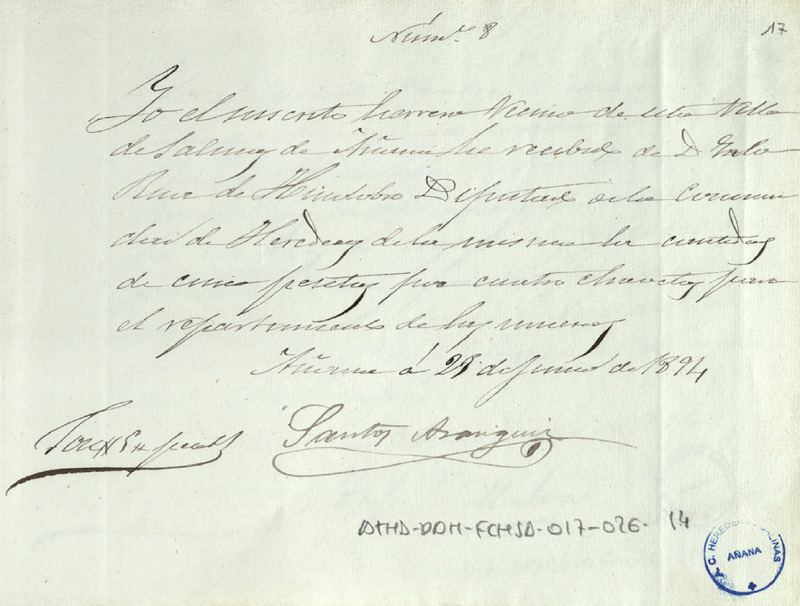 Núm.º 8
17
Yo el suscrito herrero Vecino de esta Villa
de Salinas de Añana he recibido de D.
Ruiz de Diputado de la Comuni
dad de Herederos de la misma la cantidad
de cinco pesetas por cuatro chavetas para
el repartimiento de las mueras
Añana á 29 de Junio de 1894
Santos Aranguiz
ATHA-DAH-FCHSA-017-026- 14
A.C. HEREDEROS SALINAS
AÑANA